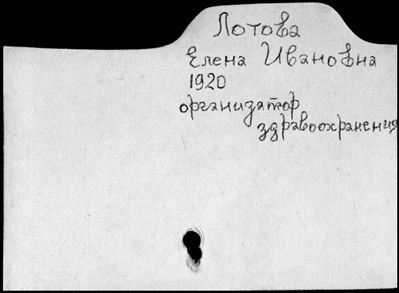 Лотова
Елена Ивановна
1920
организатор
здравоохранения